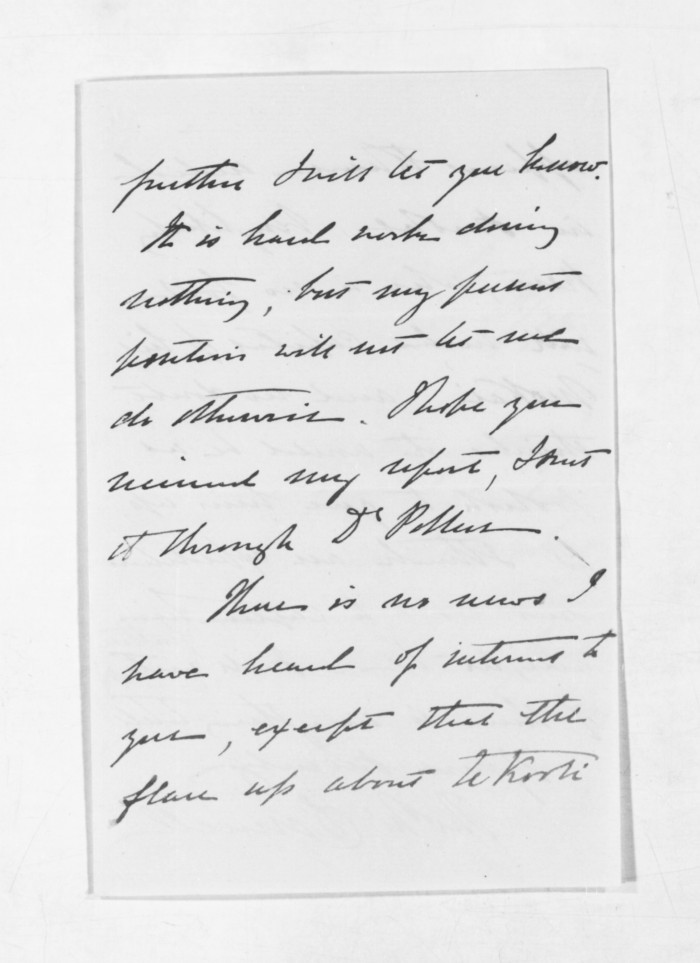 further I will let you know.
It is hard work doing
nothing, but my present
position will not let me
do otherwise. I hope you
received my report, I sent
it through Dr Pollen.
There is no news I
have heard of interest to
you, except that the
flare up about te Kooti